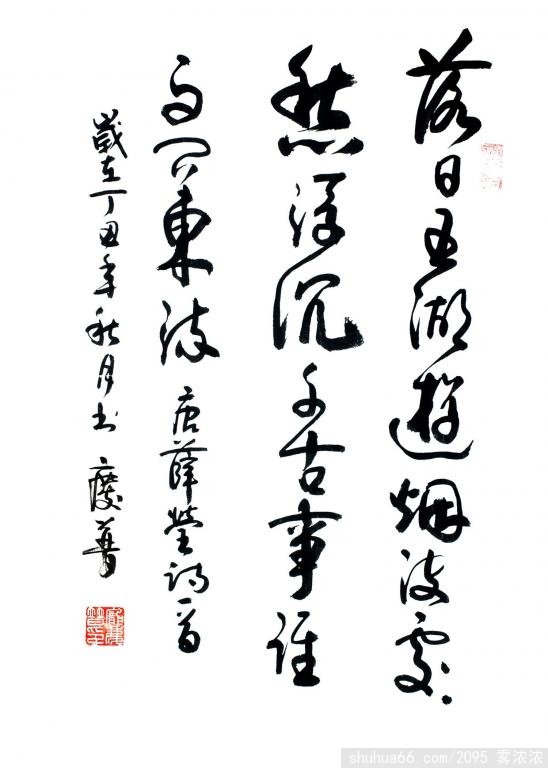 落日五湖遊烟波處々
愁浮沉千古事谁
与问東流 唐薛瑩诗一首
歲在丁丑年秋月书
shuhua66.com/2095 雾浓浓